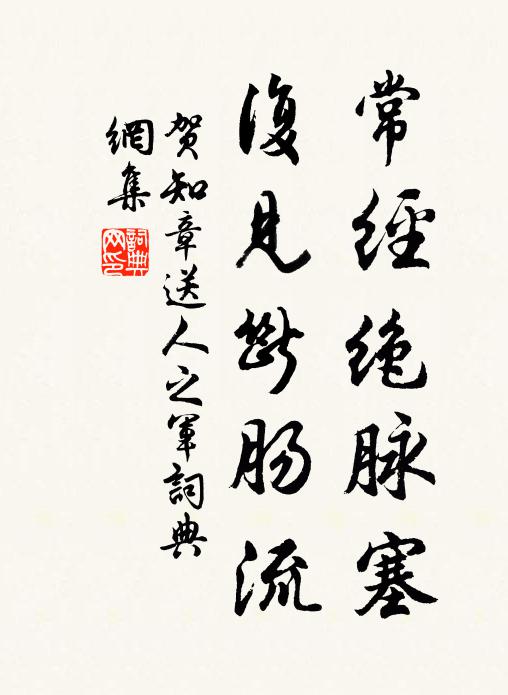 常經絶脉塞
復見斷肠流
贺知章送人之軍詞典
網集
詞典网印